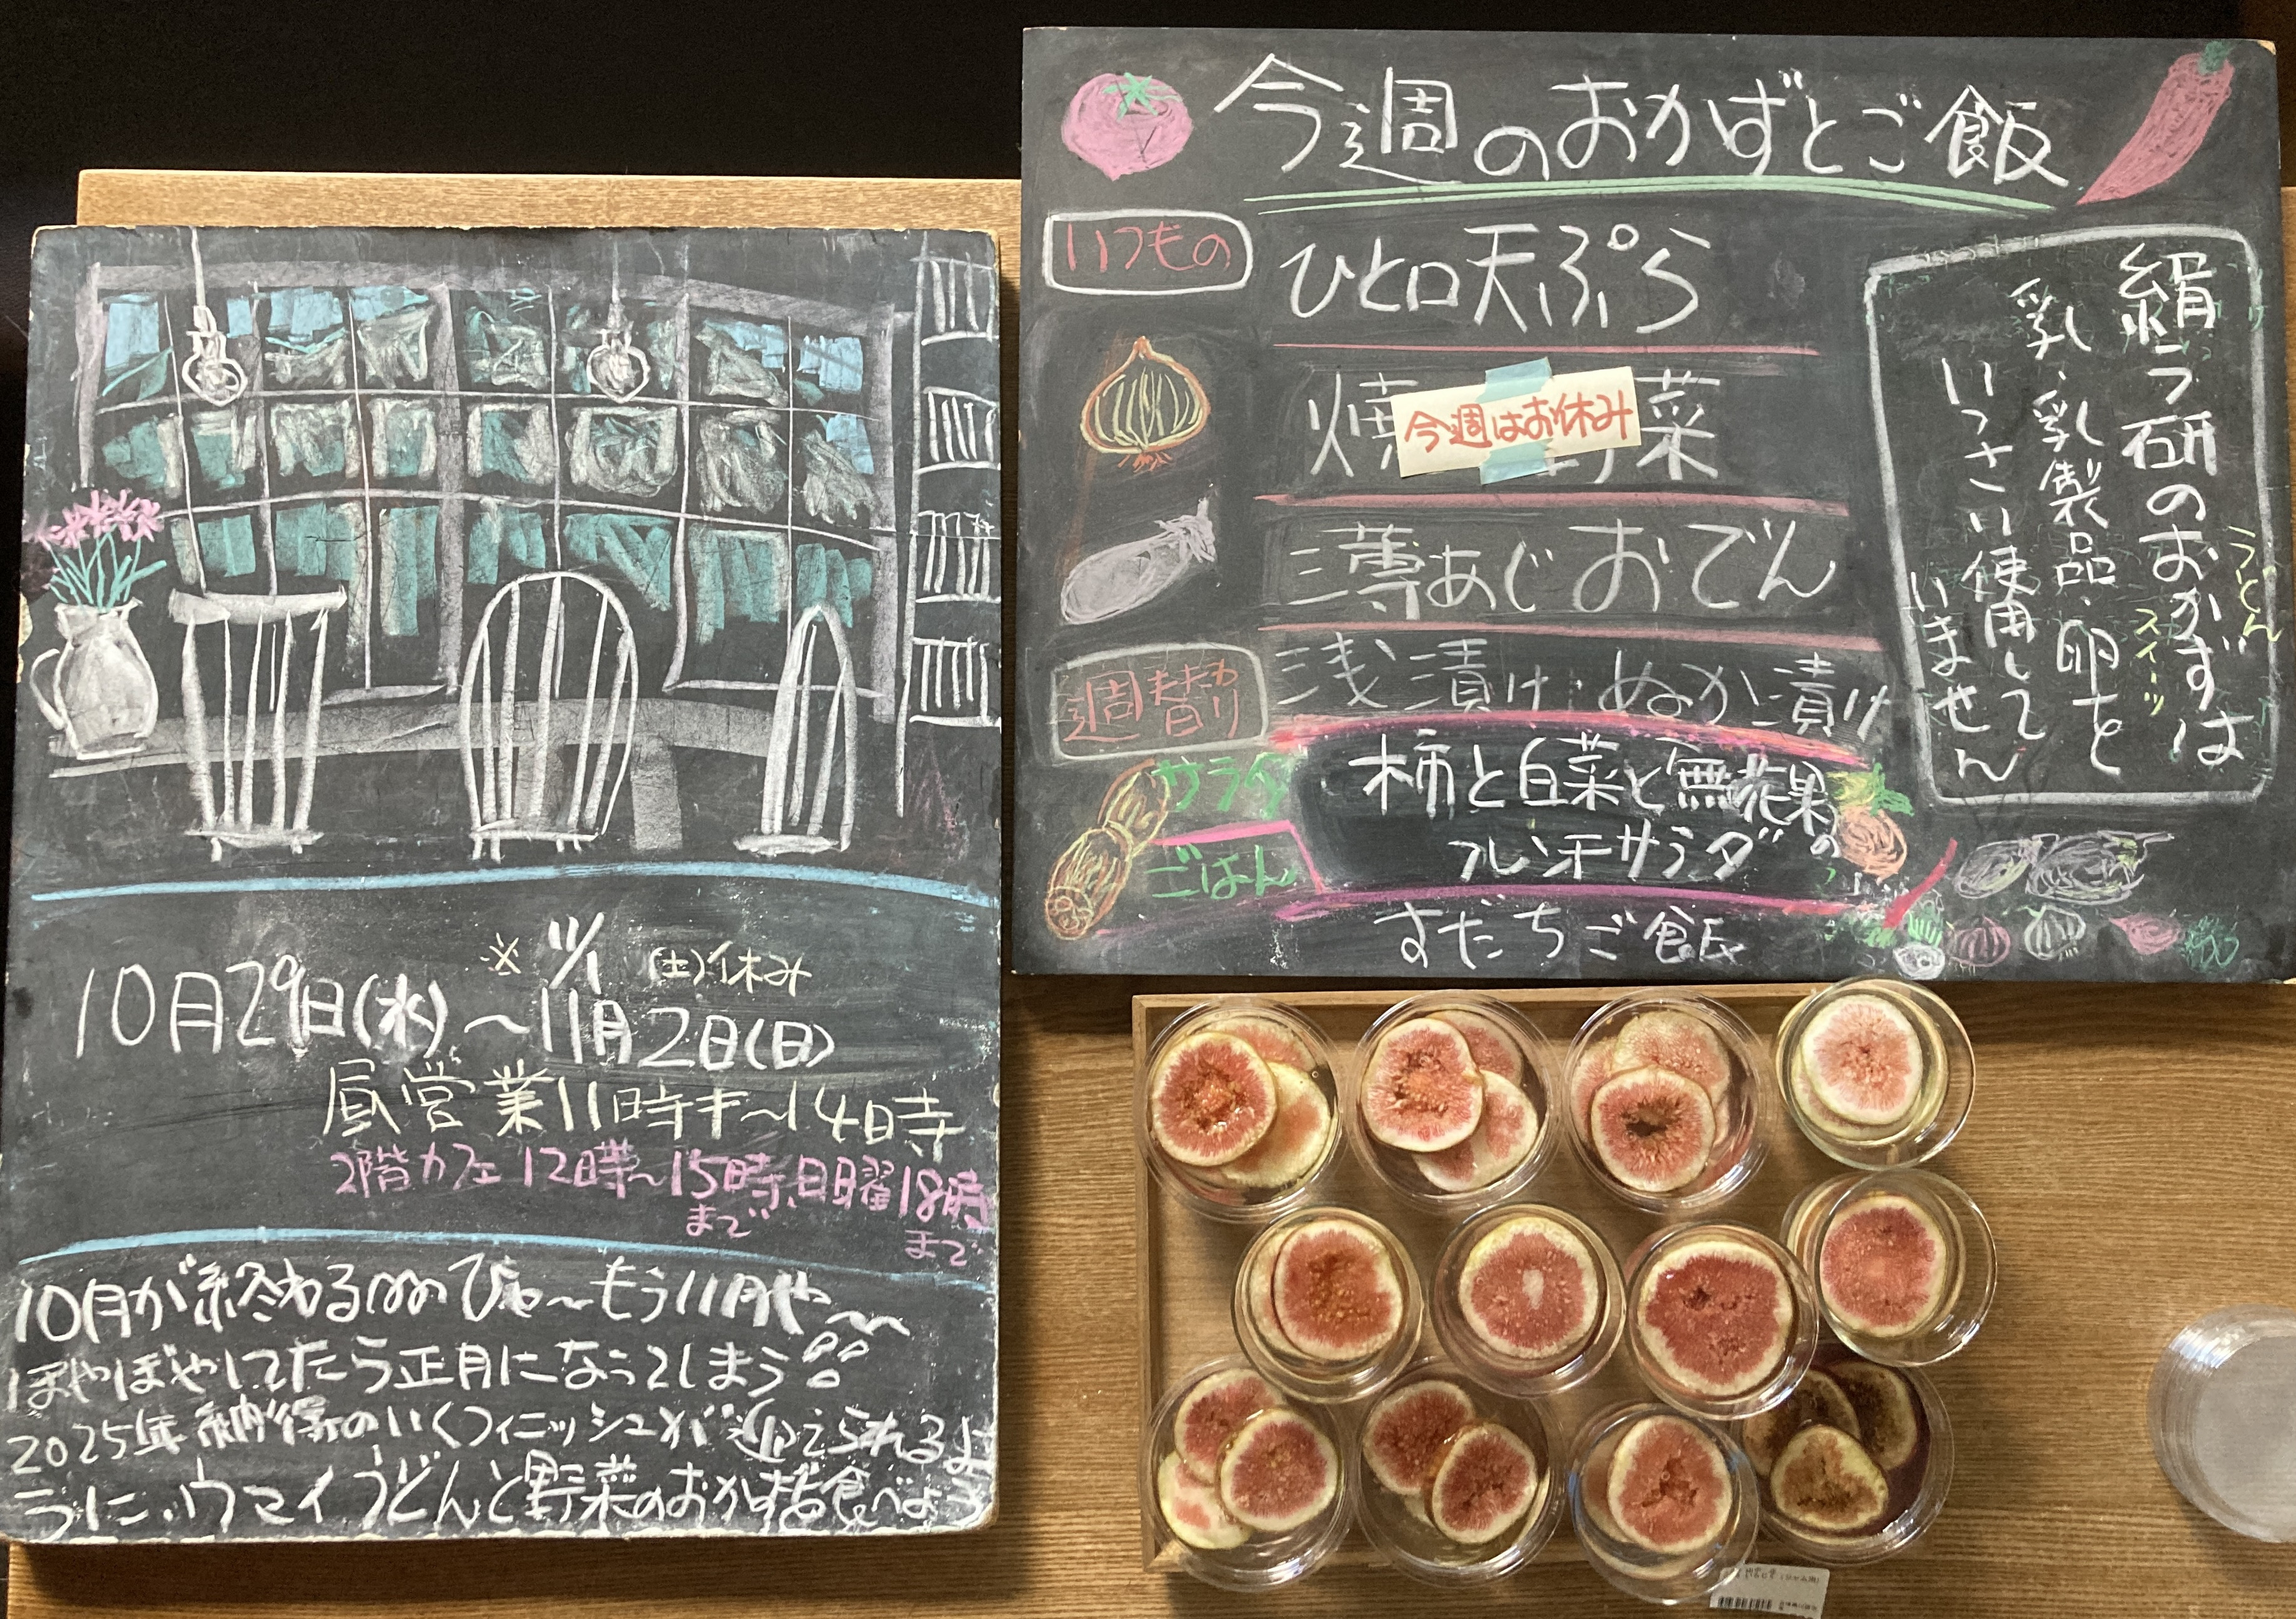 今週のおかずとご飯
いつもの
ひと口天ぷら
焼 菜
今週はお休み
薄あじおでん
浅漬け・ぬか漬け
週替わり
サラダ
柿と白菜と無花果の
フレンチサラダ
ごはん
すだちご飯
絹ラ研のおかずは
うどん
スイーツ
乳・乳製品・卵を
いっさい使用して
いません
※11/1(土)休み
10月29日(水)〜11月2日(日)
昼営業11時半〜14時
2階カフェ12時〜15時まで、日曜18時まで
10月が終わる ひゃ〜もう11月や〜
ぼやぼやしてたら正月になってしまう
2025年納得のいくフィニッシュが迎えられるよ
うに、ウマイうどんと野菜のおかず食べよう